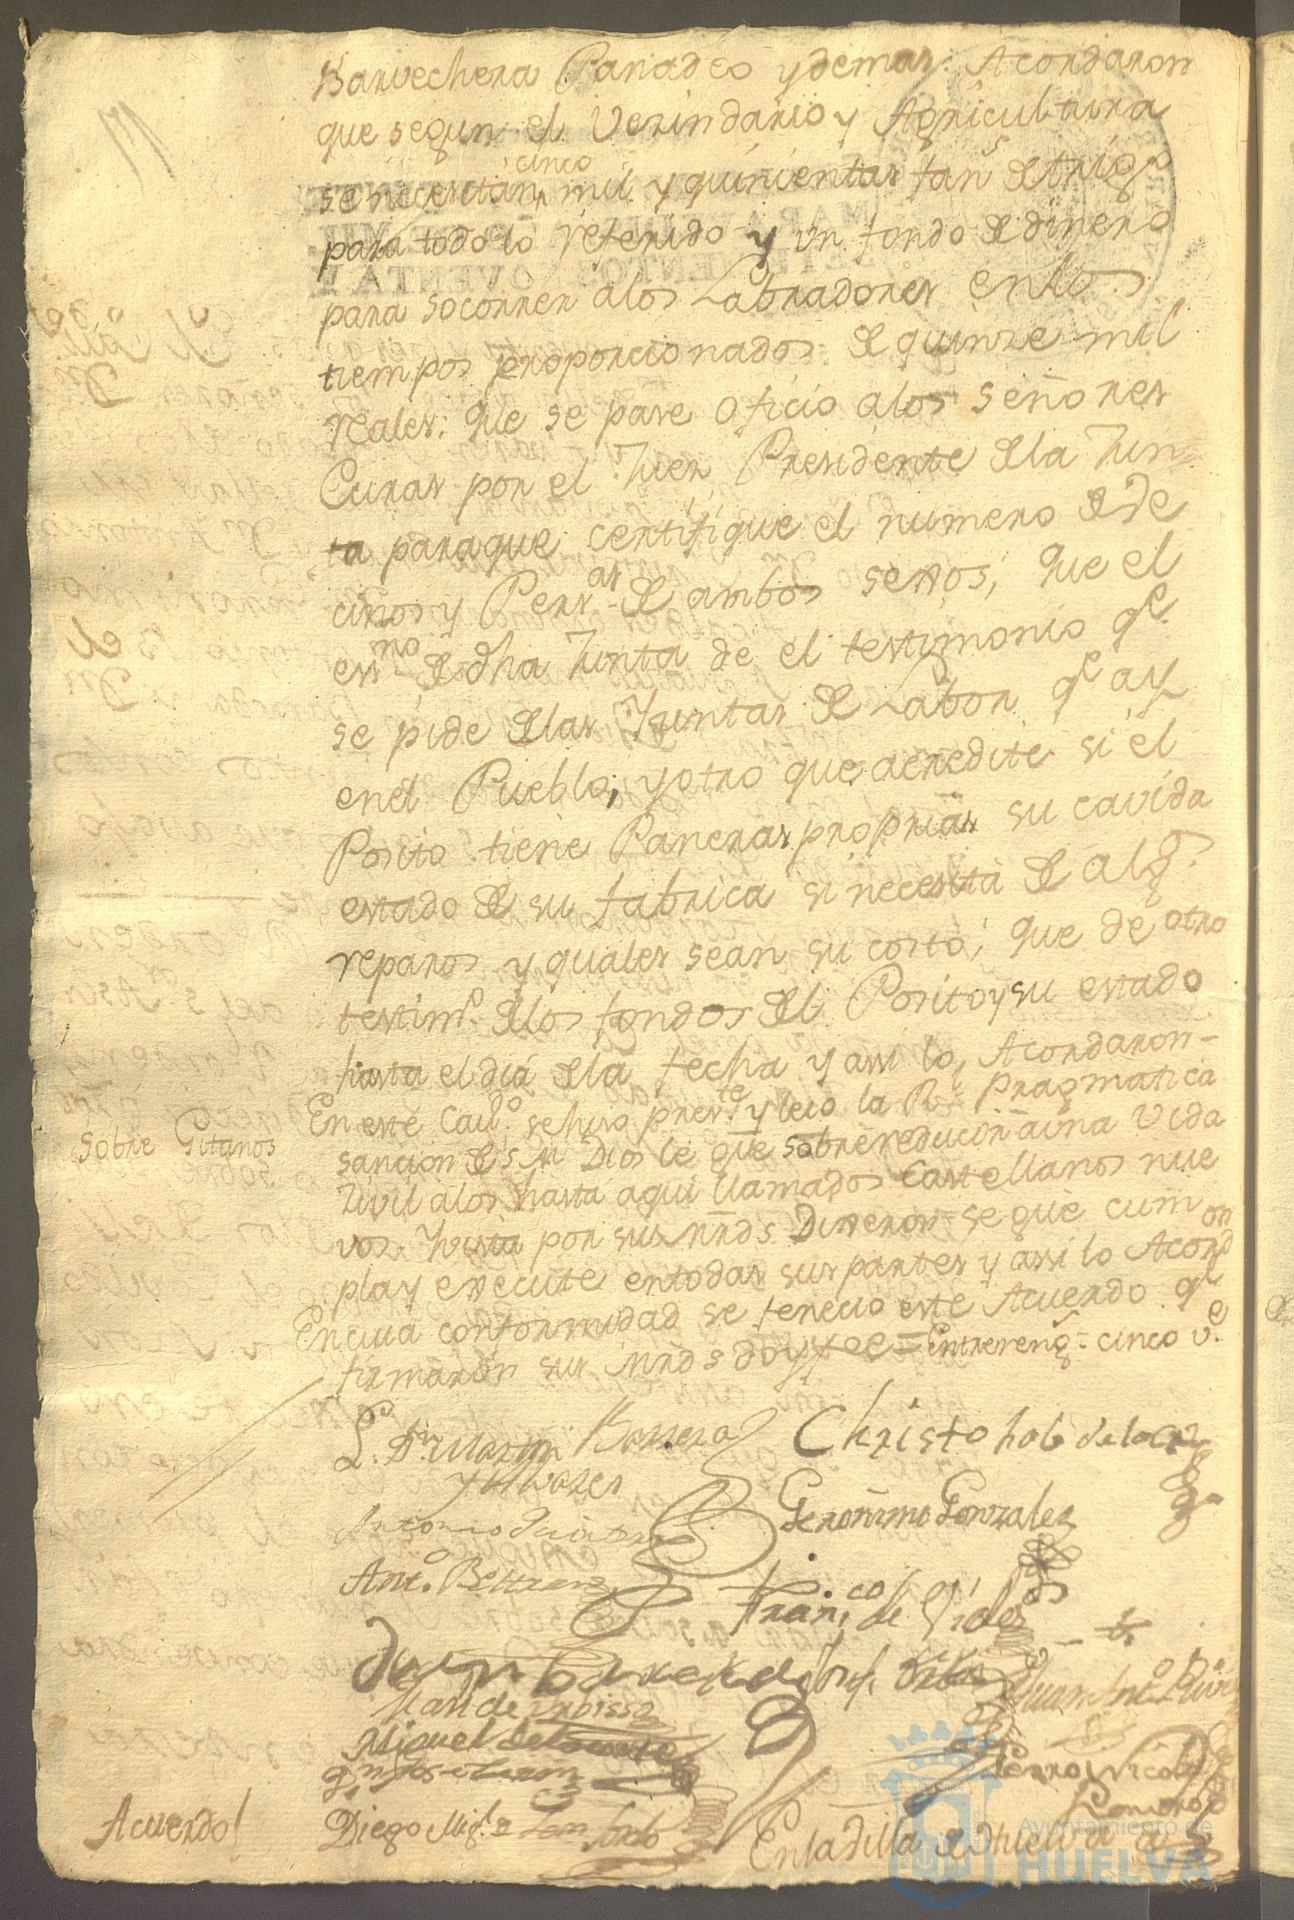 Barvechera Panadeo y demas: Acordaron
que segun el Verindario y Agricultura
cinco
se necesitan mil y quinientas fans de trigo
para todo lo referido y un fondo de dinero
para socorrer a los Labradores en los
tiempos proporcionados de quinze mil
reales: que se pase oficio a los señores
Curas por el Juez Presidente de la Jun
ta para que certifique el numero de Ve
cinos y Persas de ambos sexos; que el
essno de dha Junta de el testimonio qe
se pide de las Yuntas de Labor qe ay
en el Pueblo; y otro que acredite si el
Posito tiene Paneras proprias su cavida
estado de su fabrica si necesita de algs
reparos y quales sean su costo; que de otro
testimo de los fondos del Posito y su estado
hasta el dia de la fecha y assi lo Acordaron
Sobre Gitanos
En este Cavdo se hizo preste y leio la Rl Pragmatica
sancion de S. M. Dios le gue sobre reducir a una vida
Zivil a los hasta aqui llamados Castellanos nue
vos. Y vista por sus mrds Dixeron se gue cum
pla y execute en todas sus partes y assi lo Acordon
En cuia conformidad se fenecio este Acuerdo qe
firmaron sus mrds doy fee = Entrerengs cinco ve
L. Dn Martin Barrera
y Alvarez
Christobal de la Cruz
Geronimo Gonzalez
Anto Beltran
Franco de Vides
Juan Anto
Miguel
Pedro Nicolas
Romero
Diego Migl
Acuerdo
En la Villa de Huelva a
Ayuntamiento de
HUELVA